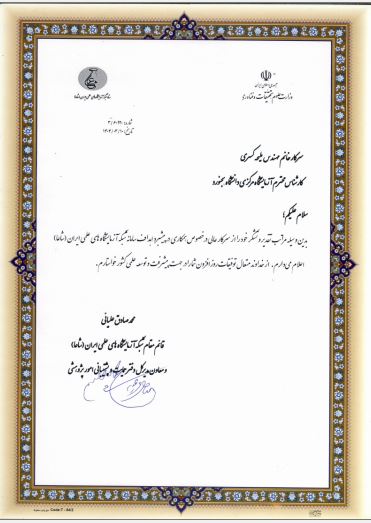 جمهوری اسلامی ایران
وزارت علوم، تحقیقات و فناوری
شبکه آزمایشگاه‌های علمی ایران (شاعا)
شماره:
تاریخ:
سرکار خانم مهندس ملیحه کسری
کارشناس محترم آزمایشگاه مرکزی دانشگاه بجنورد
سلام علیکم؛
بدین وسیله مراتب تقدیر و تشکر خود را از سرکار عالی در خصوص همکاری در پیشبرد اهداف سامانه شبکه آزمایشگاه های علمی ایران (شاعا)
اعلام می دارم. از خداوند متعال توفیقات روز افزون شما را در جهت پیشرفت و توسعه علمی کشور خواستارم.
محمد صادق علیائی
قائم مقام شبکه آزمایشگاه های علمی ایران (شاعا)
و معاون مدیر کل دفتر حمایت و پشتیبانی امور پژوهشی